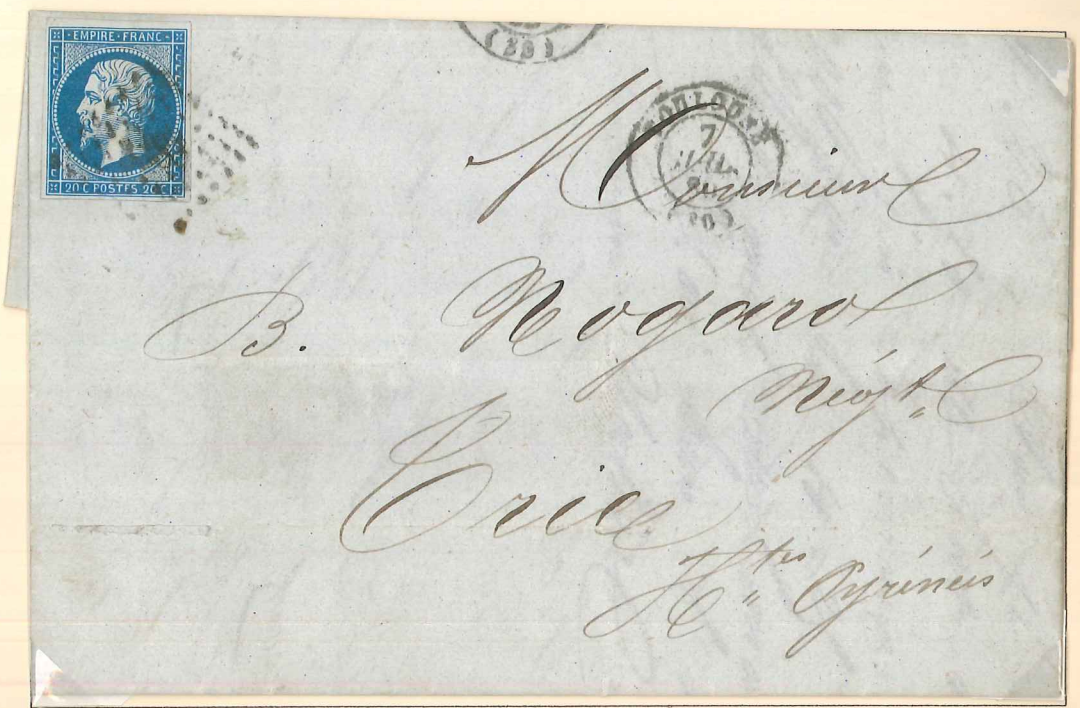 EMPIRE · FRANC ·
20 C POSTES 20 C
(28)
TOULOUSE
7
JUIL.
(30)
Monsieur
B. Nogaro
Négt.
Trie
Htes Pyrénées